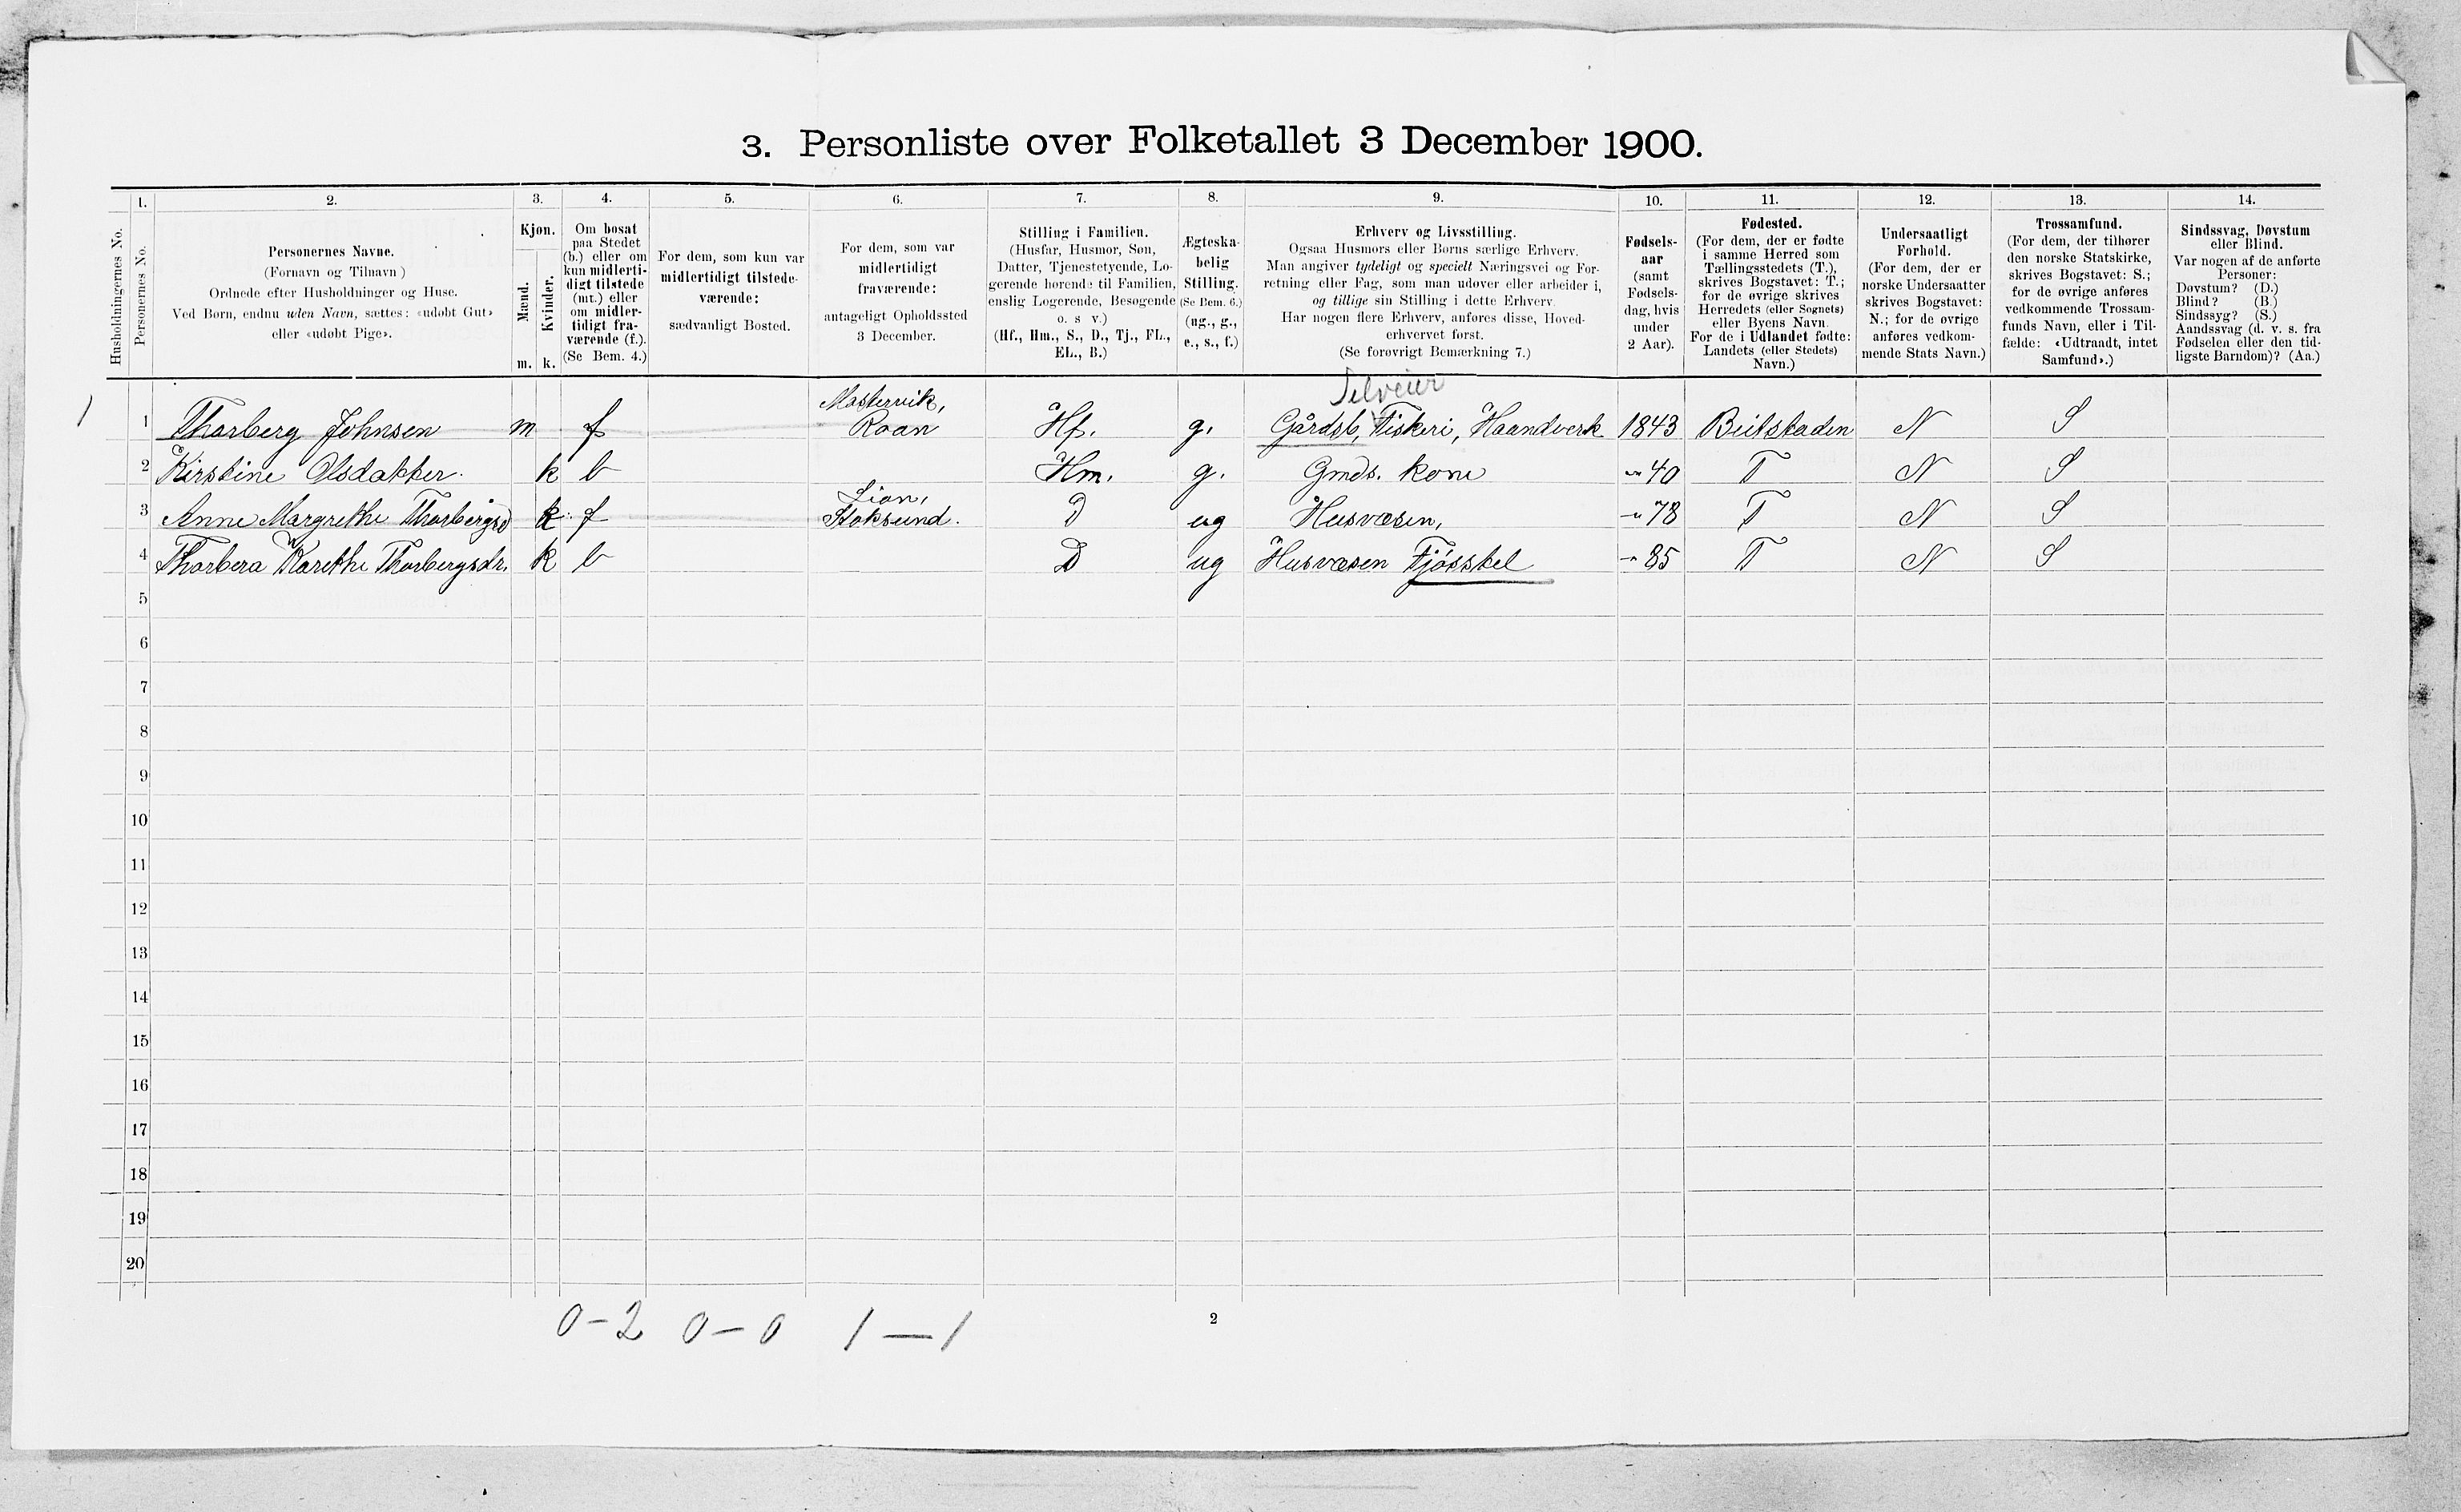 3. Personliste over Folketallet 3 December 1900.
1. 2. 3. 4. 5. 6. 7. 8. 9. 10. 11. 12. 13. 14.
Husholdningernes No.
Personernes No.
Personernes Navne.
(Fornavn og Tilnavn)
Ordnede efter Husholdninger og Huse.
Ved Børn, endnu uden Navn, sættes: «udøbt Gut»
eller «udøbt Pige».
Kjøn.
Mænd.
Kvinder.
m. k.
Om bosat
paa Stedet
(b.) eller om
kun midlerti-
digt tilstede
(mt.) eller
om midler-
tidigt fra-
værende (f.).
(Se Bem. 4.)
For dem, som kun var
midlertidigt tilstede-
værende:
sædvanligt Bosted.
For dem, som var
midlertidigt
fraværende:
antageligt Opholdssted
3 December.
Stilling i Familien.
(Husfar, Husmor, Søn,
Datter, Tjenestetyende, Lo-
gerende hørende til Familien,
enslig Logerende, Besøgende
o. s v.)
(Hf., Hm., S., D., Tj., FL.,
EL., B.)
Ægteska-
belig
Stilling.
(Se Bem. 6.)
(ug., g.,
e., s., f.)
Erhverv og Livsstilling.
Ogsaa Husmors eller Børns særlige Erhverv.
Man angiver tydeligt og specielt Næringsvei og For-
retning eller Fag, som man udøver eller arbeider i,
og tillige sin Stilling i dette Erhverv.
Har nogen flere Erhverv, anføres disse, Hoved-
erhvervet først.
(Se forøvrigt Bemærkning 7.)
Fødsels-
aar
(samt
Fødsels-
dag, hvis
under
2 Aar).
Fødested.
(For dem, der er fødte
i samme Herred som
Tællingsstedets (T.),
skrives Bogstavet: T.;
for de øvrige skrives
Herredets (eller Sognets)
eller Byens Navn.
For de i Udlandet fødte:
Landets (eller Stedets)
Navn.)
Undersaatligt
Forhold.
(For dem, der er
norske Undersaatter
skrives Bogstavet:
N.; for de øvrige
anføres vedkom-
mende Stats Navn.)
Trossamfund.
(For dem, der tilhører
den norske Statskirke,
skrives Bogstavet: S.;
for de øvrige anføres
vedkommende Trossam-
funds Navn, eller i Til-
fælde: «Udtraadt, intet
Samfund».)
Sindssvag, Døvstum
eller Blind.
Var nogen af de anførte
Personer:
Døvstum? (D.)
Blind? (B.)
Sindssyg? (S.)
Aandssvag (d. v. s. fra
Fødselen eller den tid-
ligste Barndom)? (Aa.)
Selveier
Mastervik,
1 1 Thorberg Johnsen m f Roan Hf. g. Gårdsb, Fiskeri, Haandverk 1843 Beitstaden N S
2 Kirstine Olsdatter. k b Hm. g. Gmds. kone -"- 40 T N S
Lian,
3 Anne Margrethe Thorbergsd k. f Stoksund. D ug Husvæsen, -" 78 T N S
4 Thorbera Karethe Thorbergsdr. k b D ug Husvæsen Fjösstel -" 85 T N S
5
6
7
8
9
10
11
12
13
14
15
16
17
18
19
20
0-2 0-0 1-1
2